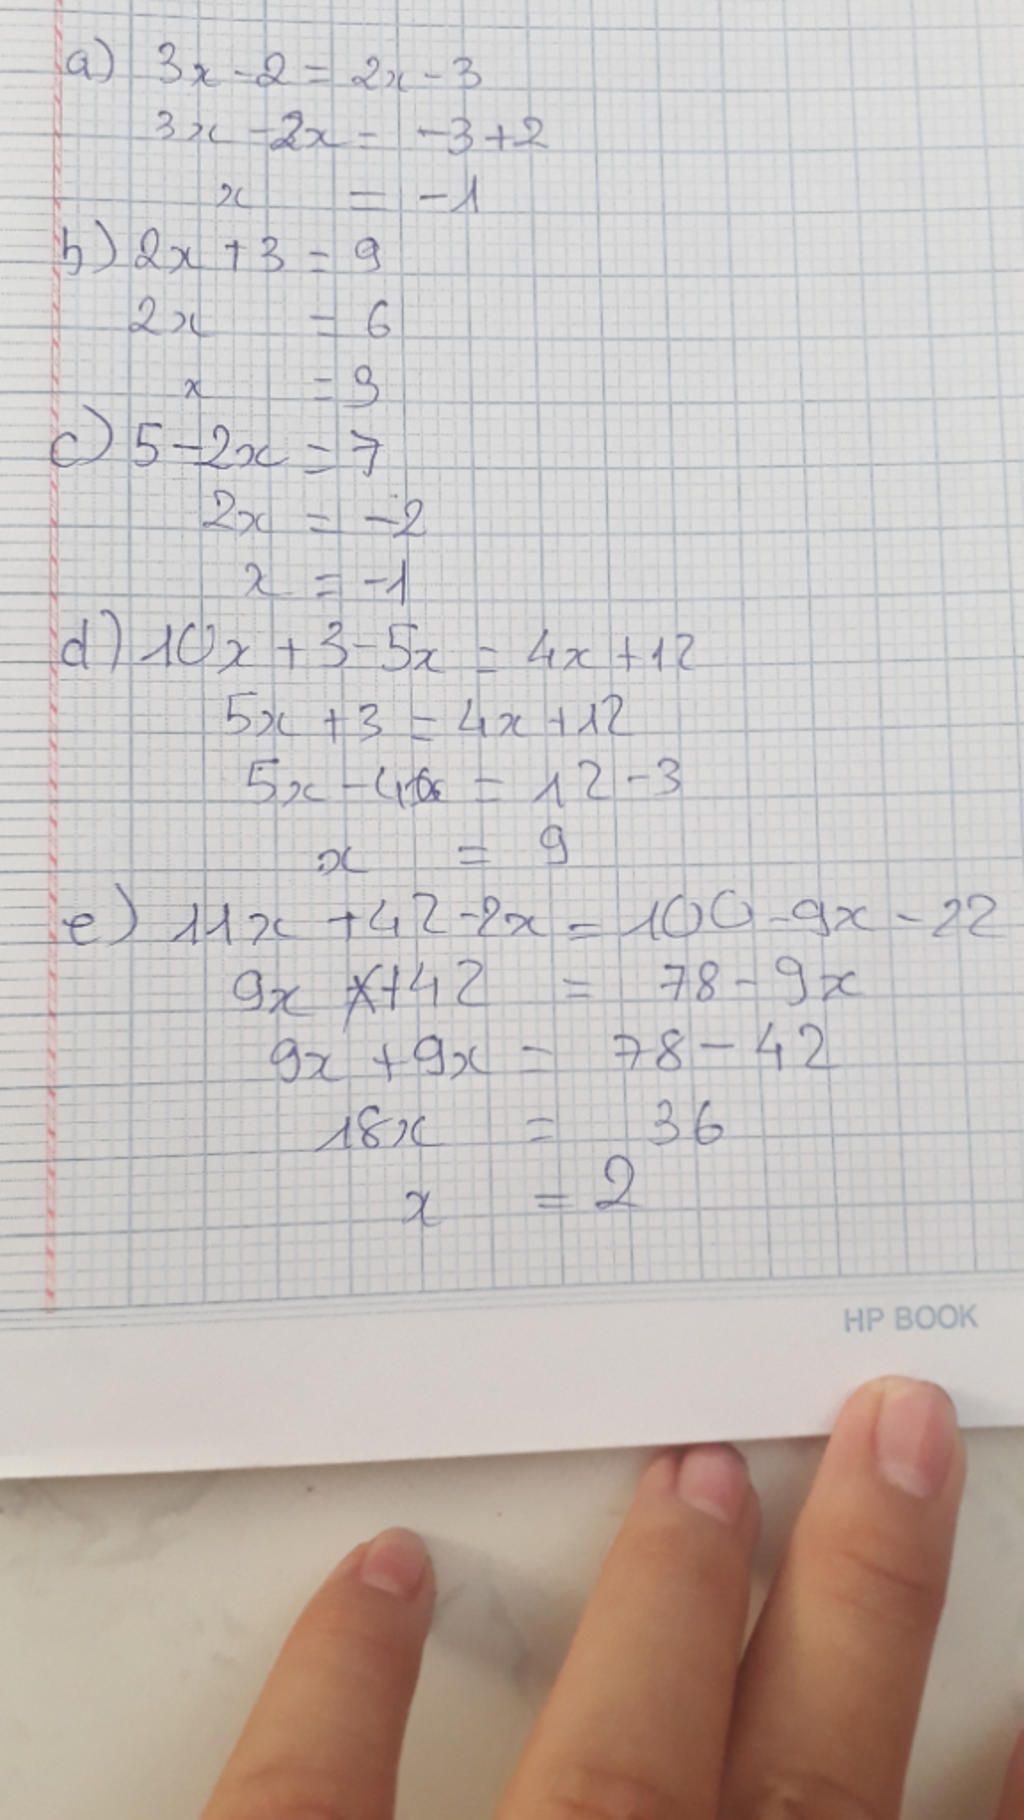 a) 3x - 2 = 2x - 3
3x - 2x = -3 + 2
x = -1
b) 2x + 3 = 9
2x = 6
x = 3
c) 5 - 2x = 7
2x = -2
x = -1
d) 10x + 3 - 5x = 4x + 12
5x + 3 = 4x + 12
5x - 4x = 12 - 3
x = 9
e) 11x + 42 - 2x = 100 - 9x - 22
9x + 42 = 78 - 9x
9x + 9x = 78 - 42
18x = 36
x = 2
HP BOOK